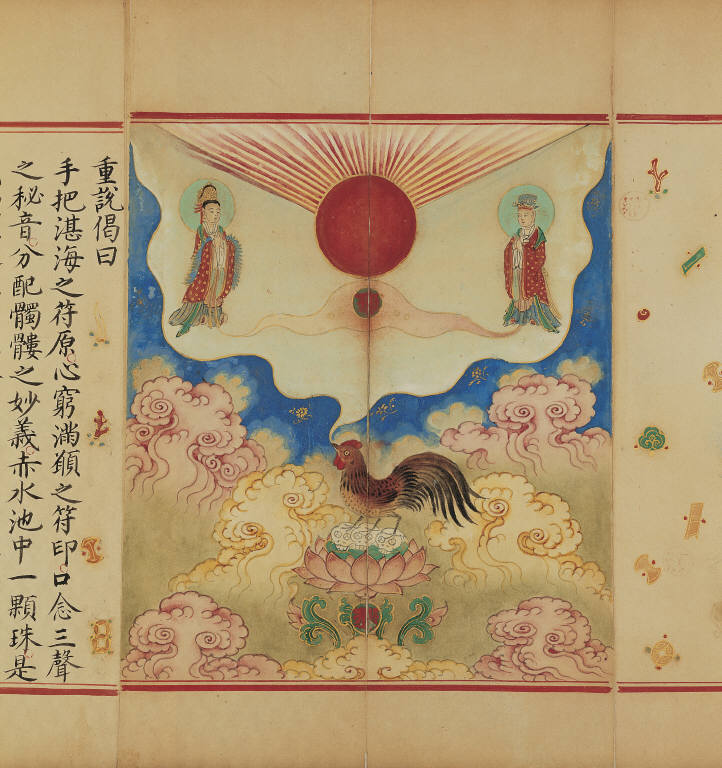 重說偈曰
手把湛海之符原心窮滿願之符印口念三聲
之秘音分配髑髏之妙義赤水池中一顆珠是